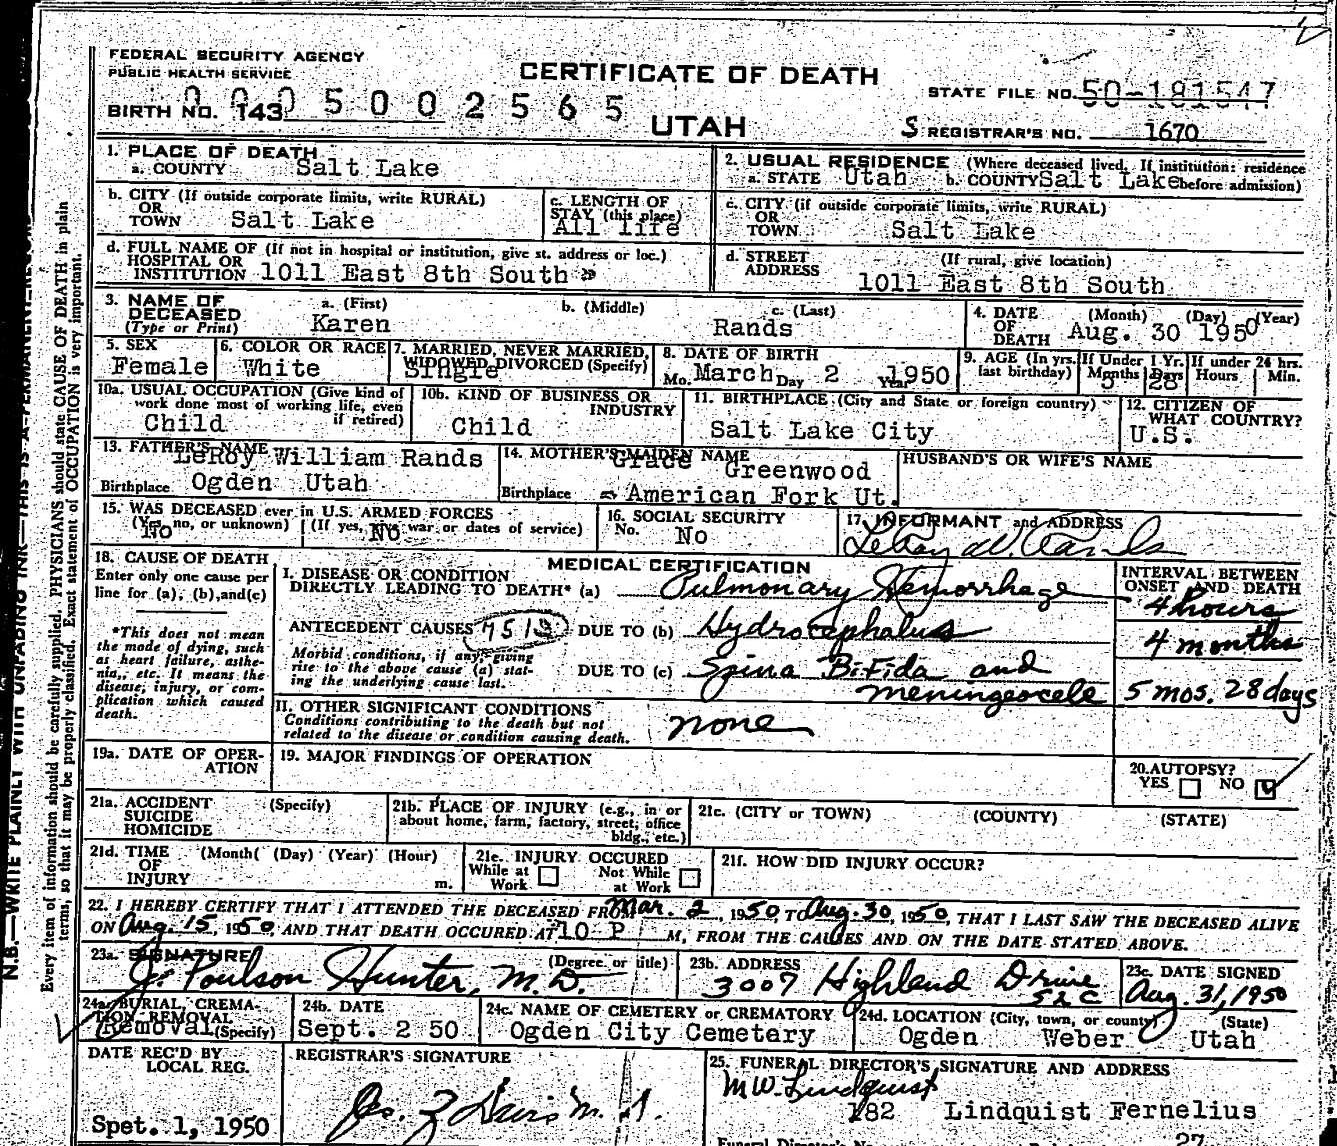 FEDERAL SECURITY AGENCY
PUBLIC HEALTH SERVICE
CERTIFICATE OF DEATH
STATE FILE NO. 50-181547
BIRTH NO. 143 0005002565
UTAH
S REGISTRAR'S NO. 1670
1. PLACE OF DEATH
a. COUNTY Salt Lake
2. USUAL RESIDENCE (Where deceased lived. If institution: residence
a. STATE Utah b. COUNTY Salt Lake before admission)
b. CITY (If outside corporate limits, write RURAL)
OR
TOWN Salt Lake
c. LENGTH OF
STAY (this place)
All life
c. CITY (if outside corporate limits, write RURAL)
OR
TOWN Salt Lake
d. FULL NAME OF (If not in hospital or institution, give st. address or loc.)
HOSPITAL OR
INSTITUTION 1011 East 8th South
d. STREET (If rural, give location)
ADDRESS
1011 East 8th South
3. NAME OF a. (First) b. (Middle) c. (Last)
DECEASED
(Type or Print) Karen Rands
4. DATE (Month) (Day) (Year)
OF
DEATH Aug. 30 1950
5. SEX
Female
6. COLOR OR RACE
White
7. MARRIED, NEVER MARRIED,
WIDOWED DIVORCED (Specify)
Single
8. DATE OF BIRTH
Mo. March Day 2 Year 1950
9. AGE (In yrs. If Under 1 Yr. If under 24 hrs.
last birthday) Months Days Hours Min.
5 28
10a. USUAL OCCUPATION (Give kind of
work done most of working life, even
if retired)
Child
10b. KIND OF BUSINESS OR
INDUSTRY
Child
11. BIRTHPLACE (City and State or foreign country)
Salt Lake City
12. CITIZEN OF
WHAT COUNTRY?
U.S.
13. FATHER'S NAME
LeRoy William Rands
Birthplace Ogden Utah
14. MOTHER'S MAIDEN NAME
Grace Greenwood
Birthplace American Fork Ut.
HUSBAND'S OR WIFE'S NAME
15. WAS DECEASED ever in U.S. ARMED FORCES
(Yes, no, or unknown) (If yes, give war or dates of service)
No No
16. SOCIAL SECURITY
No. No
17. INFORMANT and ADDRESS
LeRoy W. Rands
18. CAUSE OF DEATH
Enter only one cause per
line for (a), (b), and (c)
*This does not mean
the mode of dying, such
as heart failure, asthe-
nia, etc. It means the
disease, injury, or com-
plication which caused
death.
MEDICAL CERTIFICATION
I. DISEASE OR CONDITION
DIRECTLY LEADING TO DEATH* (a) Pulmonary Hemorrhage
INTERVAL BETWEEN
ONSET AND DEATH
4 hours
ANTECEDENT CAUSES 7513 DUE TO (b) Hydrocephalus
4 months
Morbid conditions, if any giving
rise to the above cause (a) stat-
ing the underlying cause last.
DUE TO (c) Spina Bifida and
meningeocele 5 mos. 28 days
II. OTHER SIGNIFICANT CONDITIONS
Conditions contributing to the death but not
related to the disease or condition causing death.
none
19a. DATE OF OPER-
ATION
19. MAJOR FINDINGS OF OPERATION
20. AUTOPSY?
YES NO
21a. ACCIDENT (Specify)
SUICIDE
HOMICIDE
21b. PLACE OF INJURY (e.g., in or
about home, farm, factory, street, office
bldg., etc.)
21c. (CITY or TOWN) (COUNTY) (STATE)
21d. TIME (Month( (Day) (Year) (Hour)
OF
INJURY m.
21e. INJURY OCCURED
While at Not While
Work at Work
21f. HOW DID INJURY OCCUR?
22. I HEREBY CERTIFY THAT I ATTENDED THE DECEASED FROM Mar. 2, 1950, TO Aug. 30, 1950, THAT I LAST SAW THE DECEASED ALIVE
ON Aug. 15, 1950, AND THAT DEATH OCCURED AT 10 P M, FROM THE CAUSES AND ON THE DATE STATED ABOVE.
23a. SIGNATURE (Degree or title)
J. Poulson Hunter, M.D.
23b. ADDRESS
3007 Highland Drive
SLC
23c. DATE SIGNED
Aug. 31, 1950
24a. BURIAL, CREMA-
TION REMOVAL
Removal (Specify)
24b. DATE
Sept. 2 50
24c. NAME OF CEMETERY or CREMATORY
Ogden City Cemetery
24d. LOCATION (City, town, or county) (State)
Ogden Weber Utah
DATE REC'D BY
LOCAL REG.
Spet. 1, 1950
REGISTRAR'S SIGNATURE
Jos. Z Davis M.D.
25. FUNERAL DIRECTOR'S SIGNATURE AND ADDRESS
M W. Lindquist
182 Lindquist Fernelius
27
N.B.—WRITE PLAINLY WITH UNFADING INK—THIS IS A PERMANENT RECORD
Every item of information should be carefully supplied. PHYSICIANS should state CAUSE OF DEATH in plain
terms, so that it may be properly classified. Exact statement of OCCUPATION is very important.